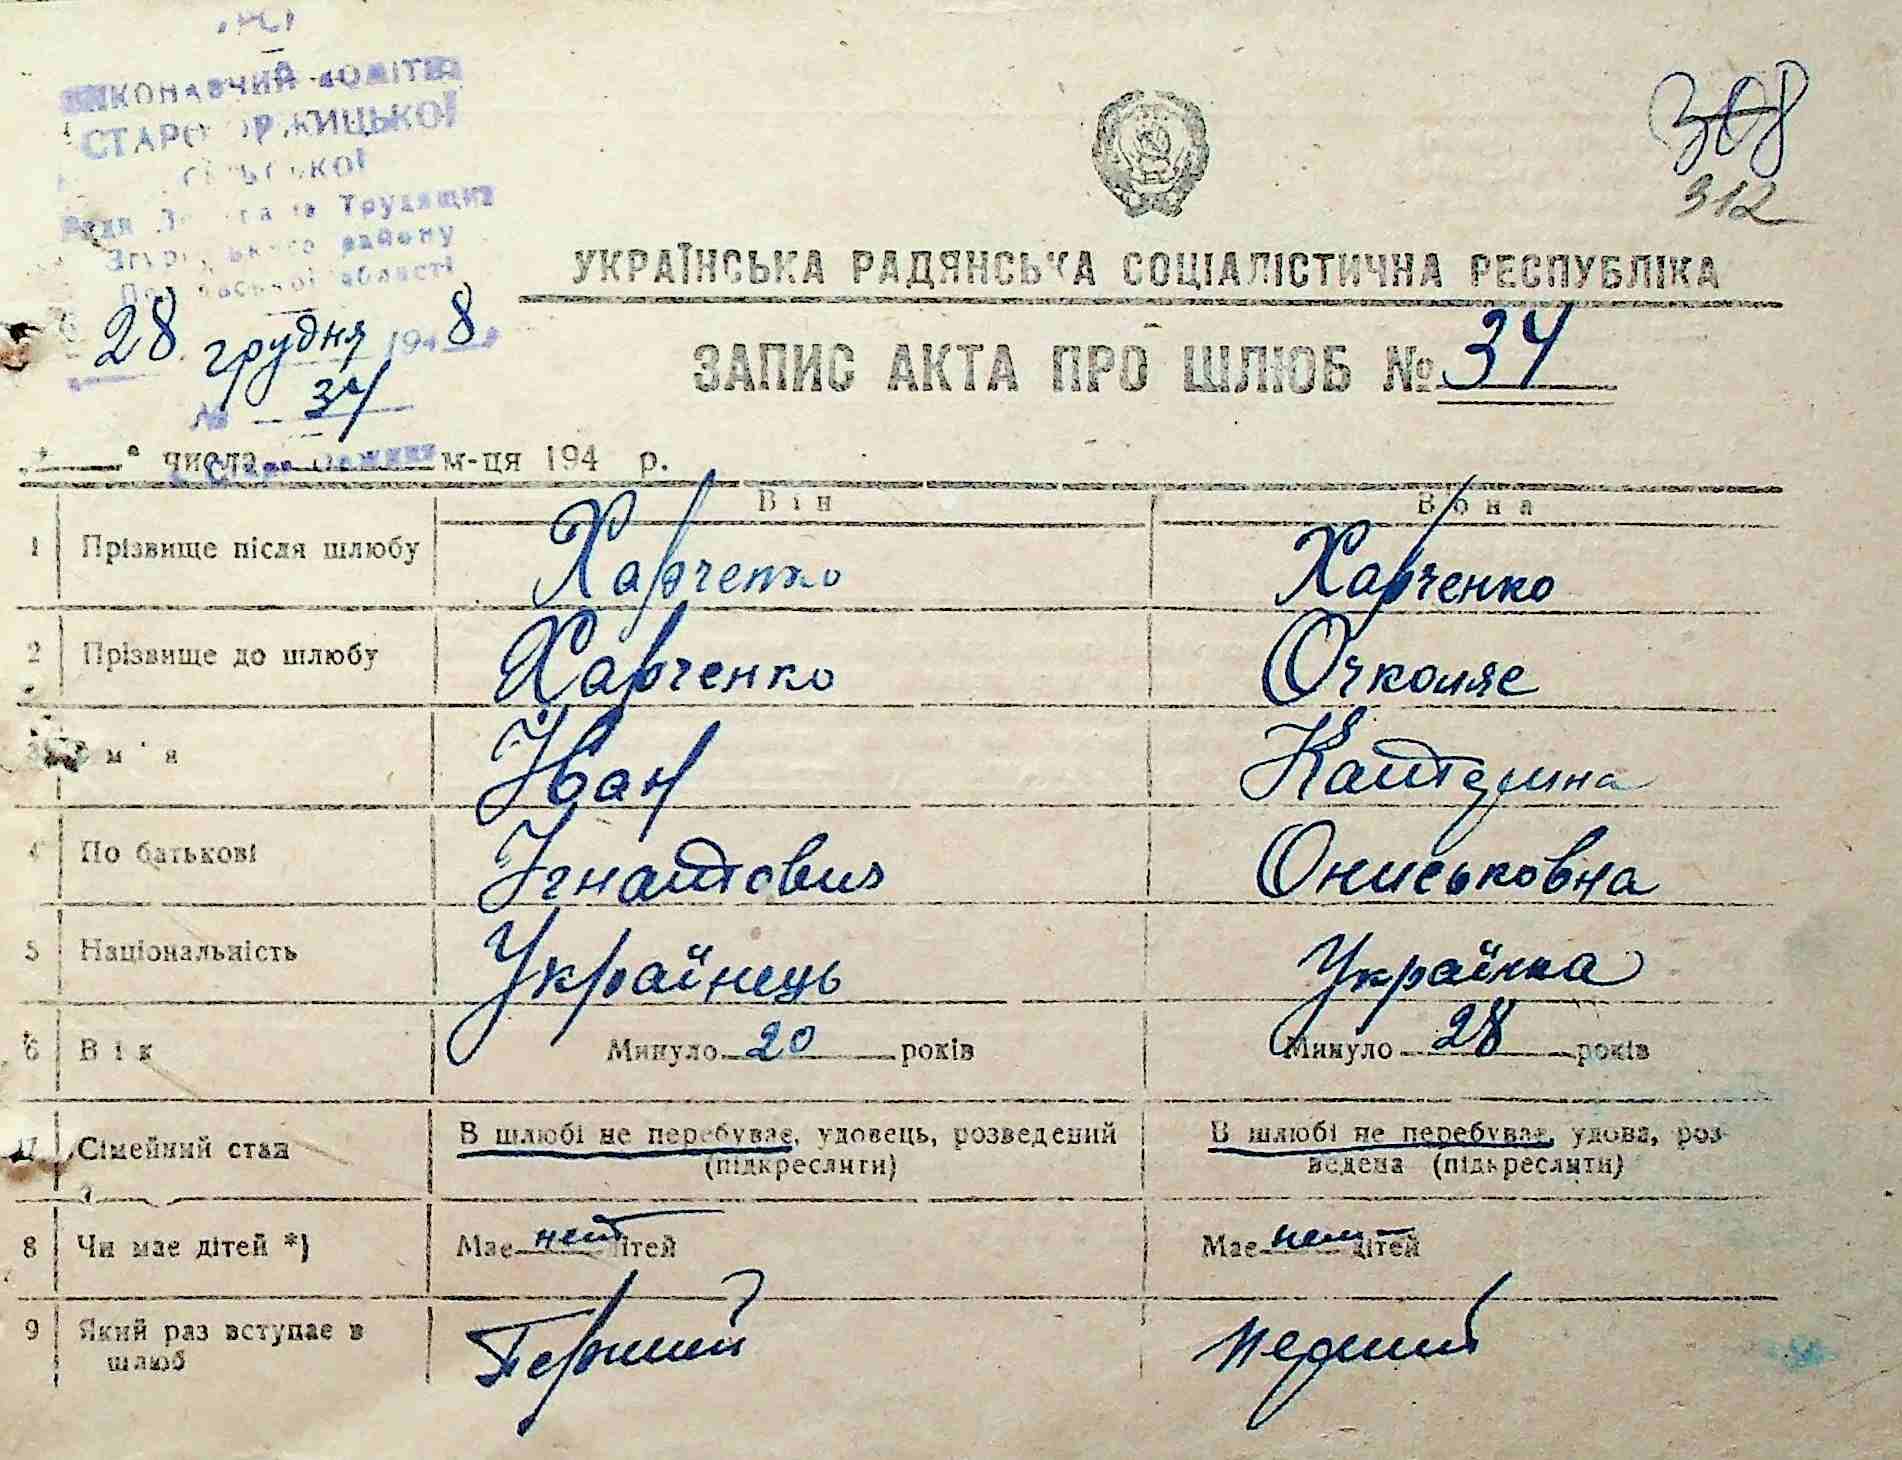 УРСР
ВИКОНАВЧИЙ КОМІТЕТ
СТАРООРЖИЦЬКОЇ
СІЛЬСЬКОЇ
Ради Депутатів Трудящих
Згурівського району
Полтавської області
28 грудня 1948
№ 34
308
312
УКРАЇНСЬКА РАДЯНСЬКА СОЦІАЛІСТИЧНА РЕСПУБЛІКА
ЗАПИС АКТА ПРО ШЛЮБ № 34
числа м-ця 194 р.
Він Вона
1 Прізвище після шлюбу Харченко Харченко
2 Прізвище до шлюбу Харченко
м'я Іван Катерина
4 По батькові Ігнатович Ониськовна
5 Національність Українець Українка
6 Вік Минуло 20 років Минуло 28 років
7 Сімейний стан В шлюбі не перебуває, удовець, розведений (підкреслити) В шлюбі не перебуває, удова, роз-
ведена (підкреслити)
8 Чи має дітей *) Має нет дітей Має нет дітей
9 Який раз вступає в шлюб Перший Перший